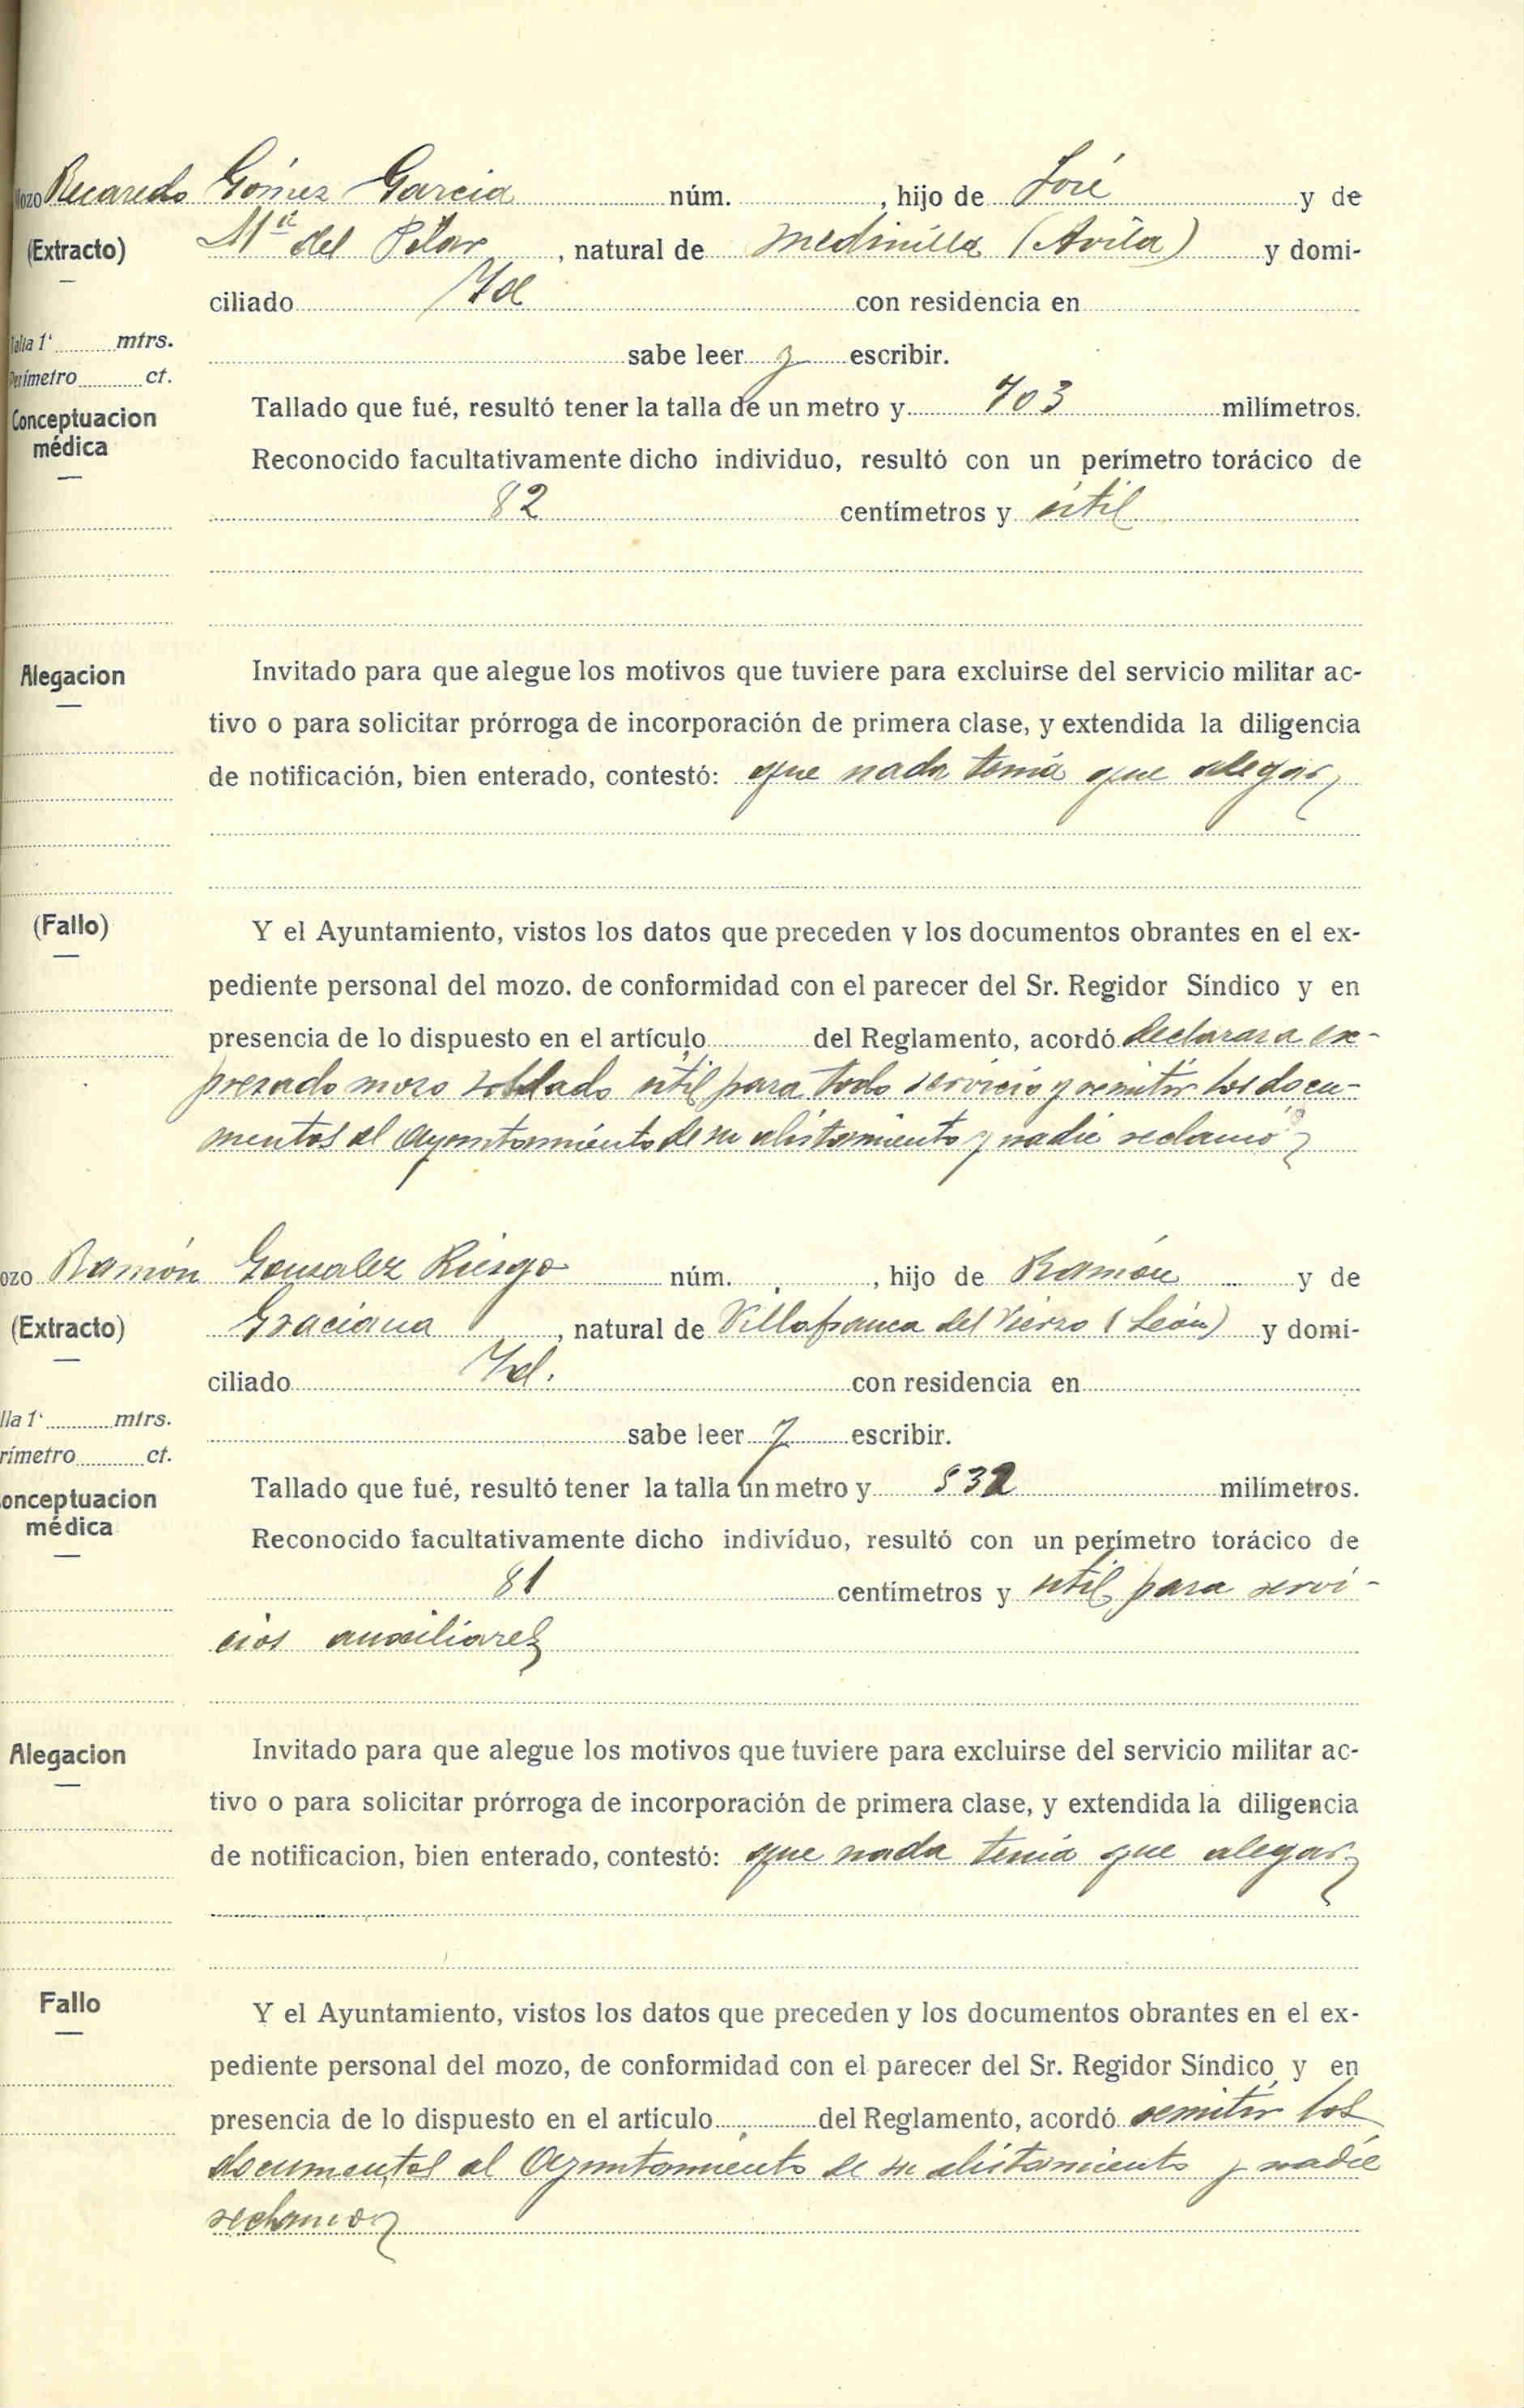 Mozo Recaredo Gómez García núm. , hijo de José y de
(Extracto) Mª del Pilar , natural de Medinilla (Avila) y domi-
ciliado Id con residencia en
Talla 1' mtrs. sabe leer y escribir.
Perímetro ct.
Conceptuacion Tallado que fué, resultó tener la talla de un metro y 703 milímetros.
médica Reconocido facultativamente dicho individuo, resultó con un perímetro torácico de
82 centímetros y útil
Alegacion Invitado para que alegue los motivos que tuviere para excluirse del servicio militar ac-
tivo o para solicitar prórroga de incorporación de primera clase, y extendida la diligencia
de notificación, bien enterado, contestó: que nada tenía que alegar
(Fallo) Y el Ayuntamiento, vistos los datos que preceden y los documentos obrantes en el ex-
pediente personal del mozo. de conformidad con el parecer del Sr. Regidor Síndico y en
presencia de lo dispuesto en el artículo del Reglamento, acordó declarar a ex-
presado mozo soldado útil para todo servicio y remitir los docu-
mentos al Ayuntamiento de su alistamiento y nadie reclamó
ozo Ramón Gonzalez Riesgo núm. , hijo de Ramón y de
(Extracto) Graciana , natural de Villafranca del Vierzo (León) y domi-
ciliado Id. con residencia en
lla 1' mtrs. sabe leer y escribir.
rímetro ct.
onceptuacion Tallado que fué, resultó tener la talla un metro y 532 milímetros.
médica Reconocido facultativamente dicho indivíduo, resultó con un perímetro torácico de
81 centímetros y útil para servi-
cios auxiliares
Alegacion Invitado para que alegue los motivos que tuviere para excluirse del servicio militar ac-
tivo o para solicitar prórroga de incorporación de primera clase, y extendida la diligencia
de notificacion, bien enterado, contestó: que nada tenía que alegar
Fallo Y el Ayuntamiento, vistos los datos que preceden y los documentos obrantes en el ex-
pediente personal del mozo, de conformidad con el parecer del Sr. Regidor Síndico y en
presencia de lo dispuesto en el artículo del Reglamento, acordó remitir los
documentos al Ayuntamiento de su alistamiento y nadie
reclamó